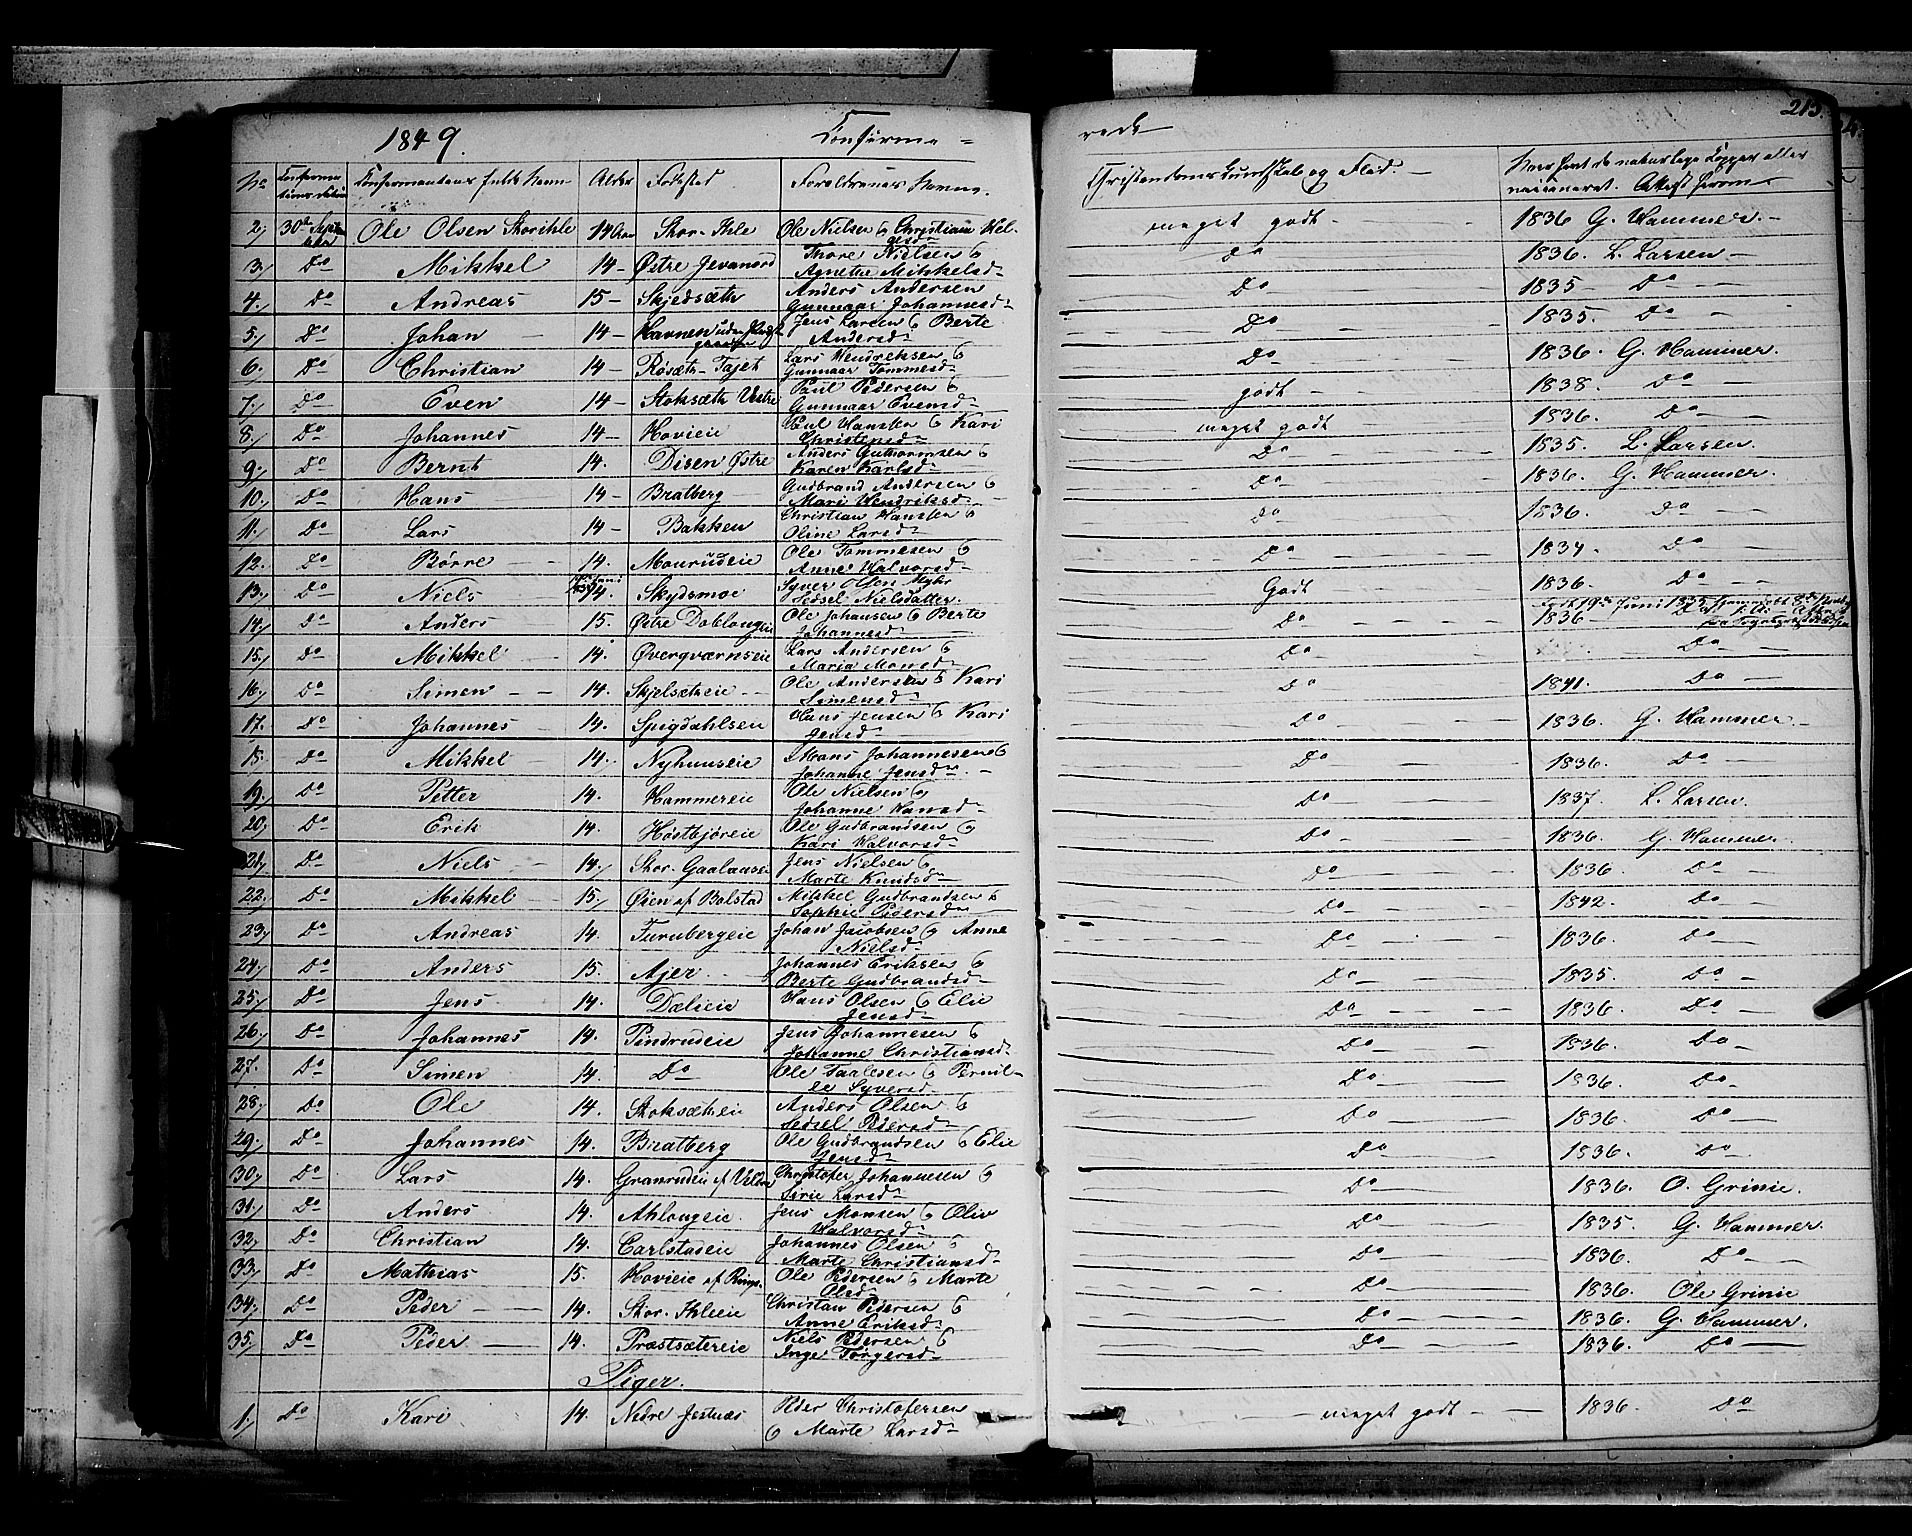 1849. Confirma=
No Confirmations datum Confirmantens fulde Navn Alder Fødested Forældrenes Navne.
2, 30te September Ole Olsen Storihle 14 Aar Stor-Ihle Ole Nielsen & Christiane Hel-
gesd.
3, Do Mikkel 14- Østre Jevanord Thore Nielsen &
Agnethe Mikkelsd.
4. Do Andreas 15- Skjedsæth Anders Andersen
Gunnaar Johannesd.
5, Do Johan 14- Jens Larsen & Berte
Andersd.
6. Do Christian 14- Røsæth-Tajet Lars Hendreksen &
Gunnaar Tommesd.
7, Do Even 14- Stoksæth Vestre Paul Pedersen &
Gunnaar Evensd.
8, Do Johannes 14- Hovieie Poul Hansen & Kari
Christensd.
9. Do Bernt 14. Disen Østre Anders Guthormsen &
Karen Karlsd.
10. Do Hans 14- Bratberg Gudbrand Andersen &
Mari Hendriksd.
11. Do Lars 14- Bakken Christian Hansen &
Oline Larsd.
12. Do Børre 14. Mourudeie Ole Tommesen &
Anne Halvorsd.
13. Do Niels 14. Skydsmoe Syver Olsen Myhr
Sidsel Nielsdatter.
14, Do Anders 15. Østre Doblougeie Ole Johansen & Berte
Johannesd.
15. Do Mikkel 14. Øvergværnseie Lars Andersen &
Maria Monsd.
16, Do Simen 14. Skjelsætheie Ole Andersen & Kari
Simensd.
17. Do Johannes 14. Spigdahlseie Hans Jensen & Kari
Jensd.
18. Do Mikkel 14. Nyhuuseie Mons Johannesen &
Johanne Jensd.
19. Do Petter 14. Hammereie Ole Nielsen &
Johanne Hansd.
20, Do Erik 14. Høstbjøreie Ole Gudbrandsen &
Kari Halvorsd.
21, Do Niels 14, Stor-Gaalaasen Jens Nielsen &
Marte Knudsd.
22. Do Mikkel 15, Øien af Bolstad Mikkel Gudbrandsen &
Sophie Pedersd.
23, Do Andreas 14. Furubergeie Johan Jacobsen & Anne
Nielsd.
24, Do Anders 15. Ajer Johannes Eriksen &
Berte Gudbrandsd.
25, Do Jens 14. Dælieie Hans Olsen & Elie
Jensd.
26, Do Johannes 14. Pindrudeie Jens Johannesen &
Johanne Christiansd.
27. Do Simen 14. Do Ole Taalesen & Pernil-
le Syversd.
28, Do Ole 14. Stoksætheie Anders Olsen &
Sidsel Pedersd.
29. Do Johannes 14. Bratberg Ole Gudbrandsen & Elie
Jensd.
30, Do Lars 14. Granrudeie af Veldre Christofer Johannesen &
Sirie Larsd.
31. Do Anders 14. Ahlougeie. Jens Monsen & Oliv
Halvorsd.
32, Do Christian 14. Carlstadeie Johannes Olsen &
Marte Christiansd.
33, Do Mathias 15. Hovieie af Rings. Ole Pedersen & Marte
Olsd.
34, Do Peder 14. Stor-Ihleeie Christian Pedersen &
Anne Eriksd.
35. Do Peder 14. Præstsætereie Niels Pedersen &
Inge Torgersd.
Piger.
1. Do Kari 14. Nedre Jestnæs Peder Christofersen
& Marte Larsd.
rede 213.
Christendoms Kundskab og Flid. Hver havt de naturlige Kopper eller
vaccineret. Attest herom
meget godt 1836 G. Hammer.
Do 1836. L. Larsen
Do 1835 Do
Do 1835. Do
Do 1836. G. Hammer.
godt 1838. Do
meget godt 1836. Do
Do 1835. L. Larsen.
Do 1836. G. Hammer.
Do 1836. Do
Do 1837. Do
Godt 1836. Do
født 19de Juni 1835
Do 1836
Do Do
Do 1841. Do
Do 1836. G. Hammer.
Do 1836. Do
Do 1837. L. Larsen.
Do 1836. G. Hammer.
Do 1836. Do
Do 1842. Do
Do 1836. Do
Do 1835. Do
Do 1836. Do
Do 1836. Do
Do 1836. Do
Do 1836. Do
Do 1836. Do
Do 1836. O. Grinie.
Do 1835. G. Hammer.
Do 1836. Do
Do 1836. Ole Grinie
Do 1836. G. Hammer.
Do 1836. Do
meget godt 1836. Do